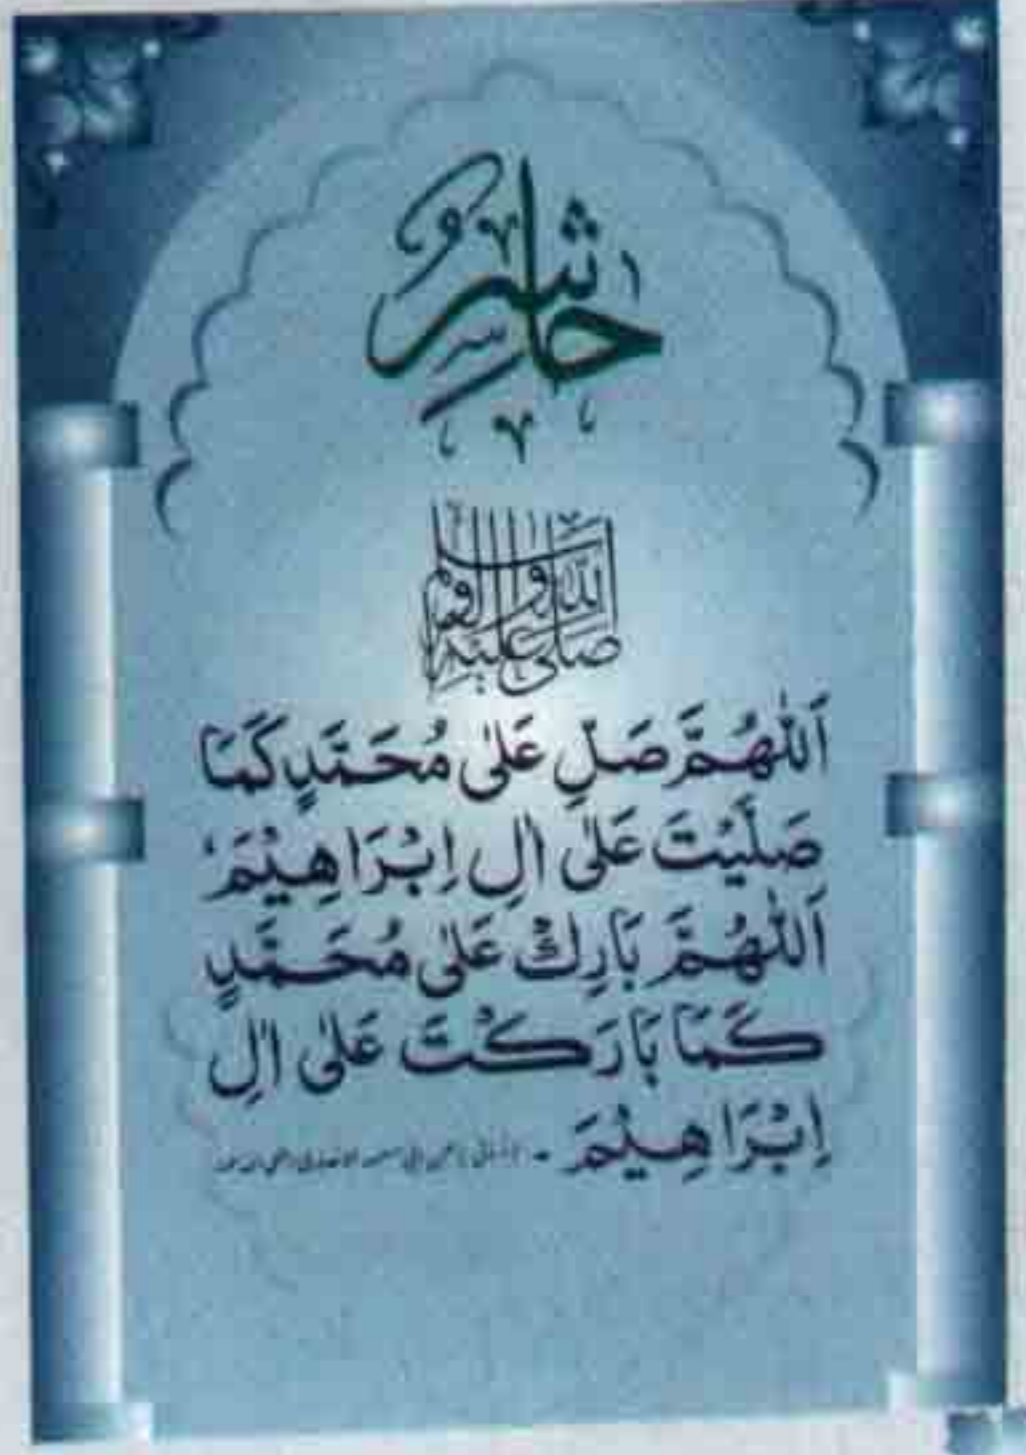 حَاشِرٌ
صَلَّى اللهُ عَلَيْهِ وَآلِهِ وَسَلَّمَ
اَللّٰهُمَّ صَلِّ عَلٰى مُحَمَّدٍ كَمَا
صَلَّيْتَ عَلٰى اٰلِ اِبْرَاهِيْمَ،
اَللّٰهُمَّ بَارِكْ عَلٰى مُحَمَّدٍ
كَمَا بَارَكْتَ عَلٰى اٰلِ
اِبْرَاهِيْمَ -